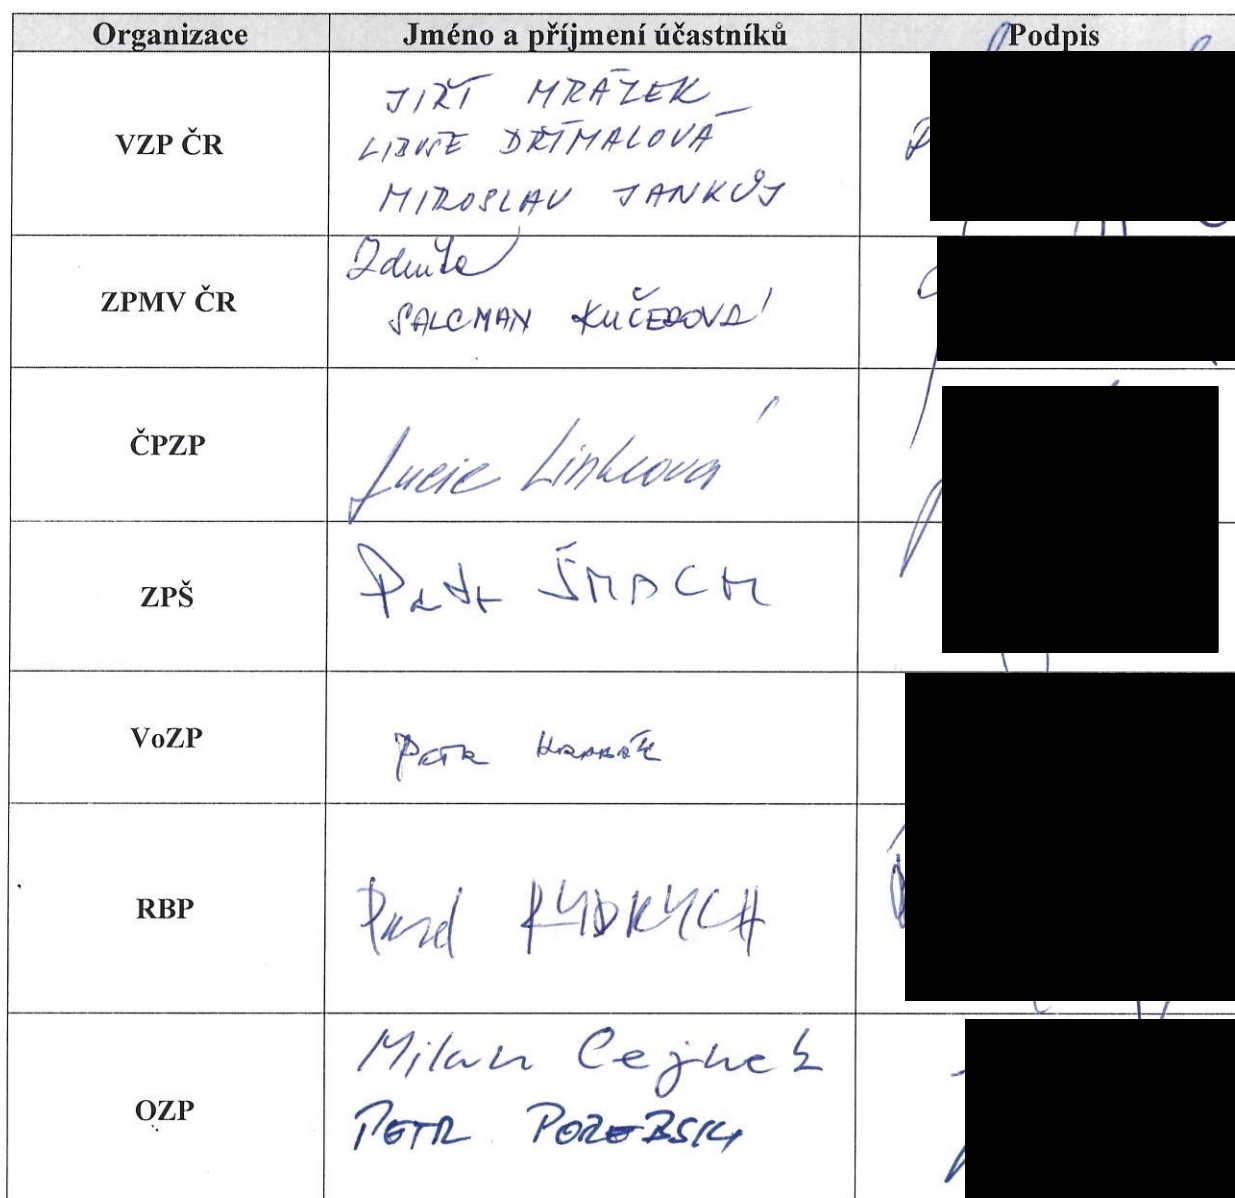 Organizace Jméno a příjmení účastníků Podpis
VZP ČR
JIŘÍ MRÁZEK
LIBUŠE DŘÍMALOVÁ
MIROSLAV JANKŮJ
ZPMV ČR
Zdeňka
SALCMAN KUČEROVÁ
ČPZP
Lucie Linková
ZPŠ
Petr ŠMACH
VoZP
PETR
RBP
Pavel RYDRYCH
OZP
Milan Cejnek
PETR POREBSKI